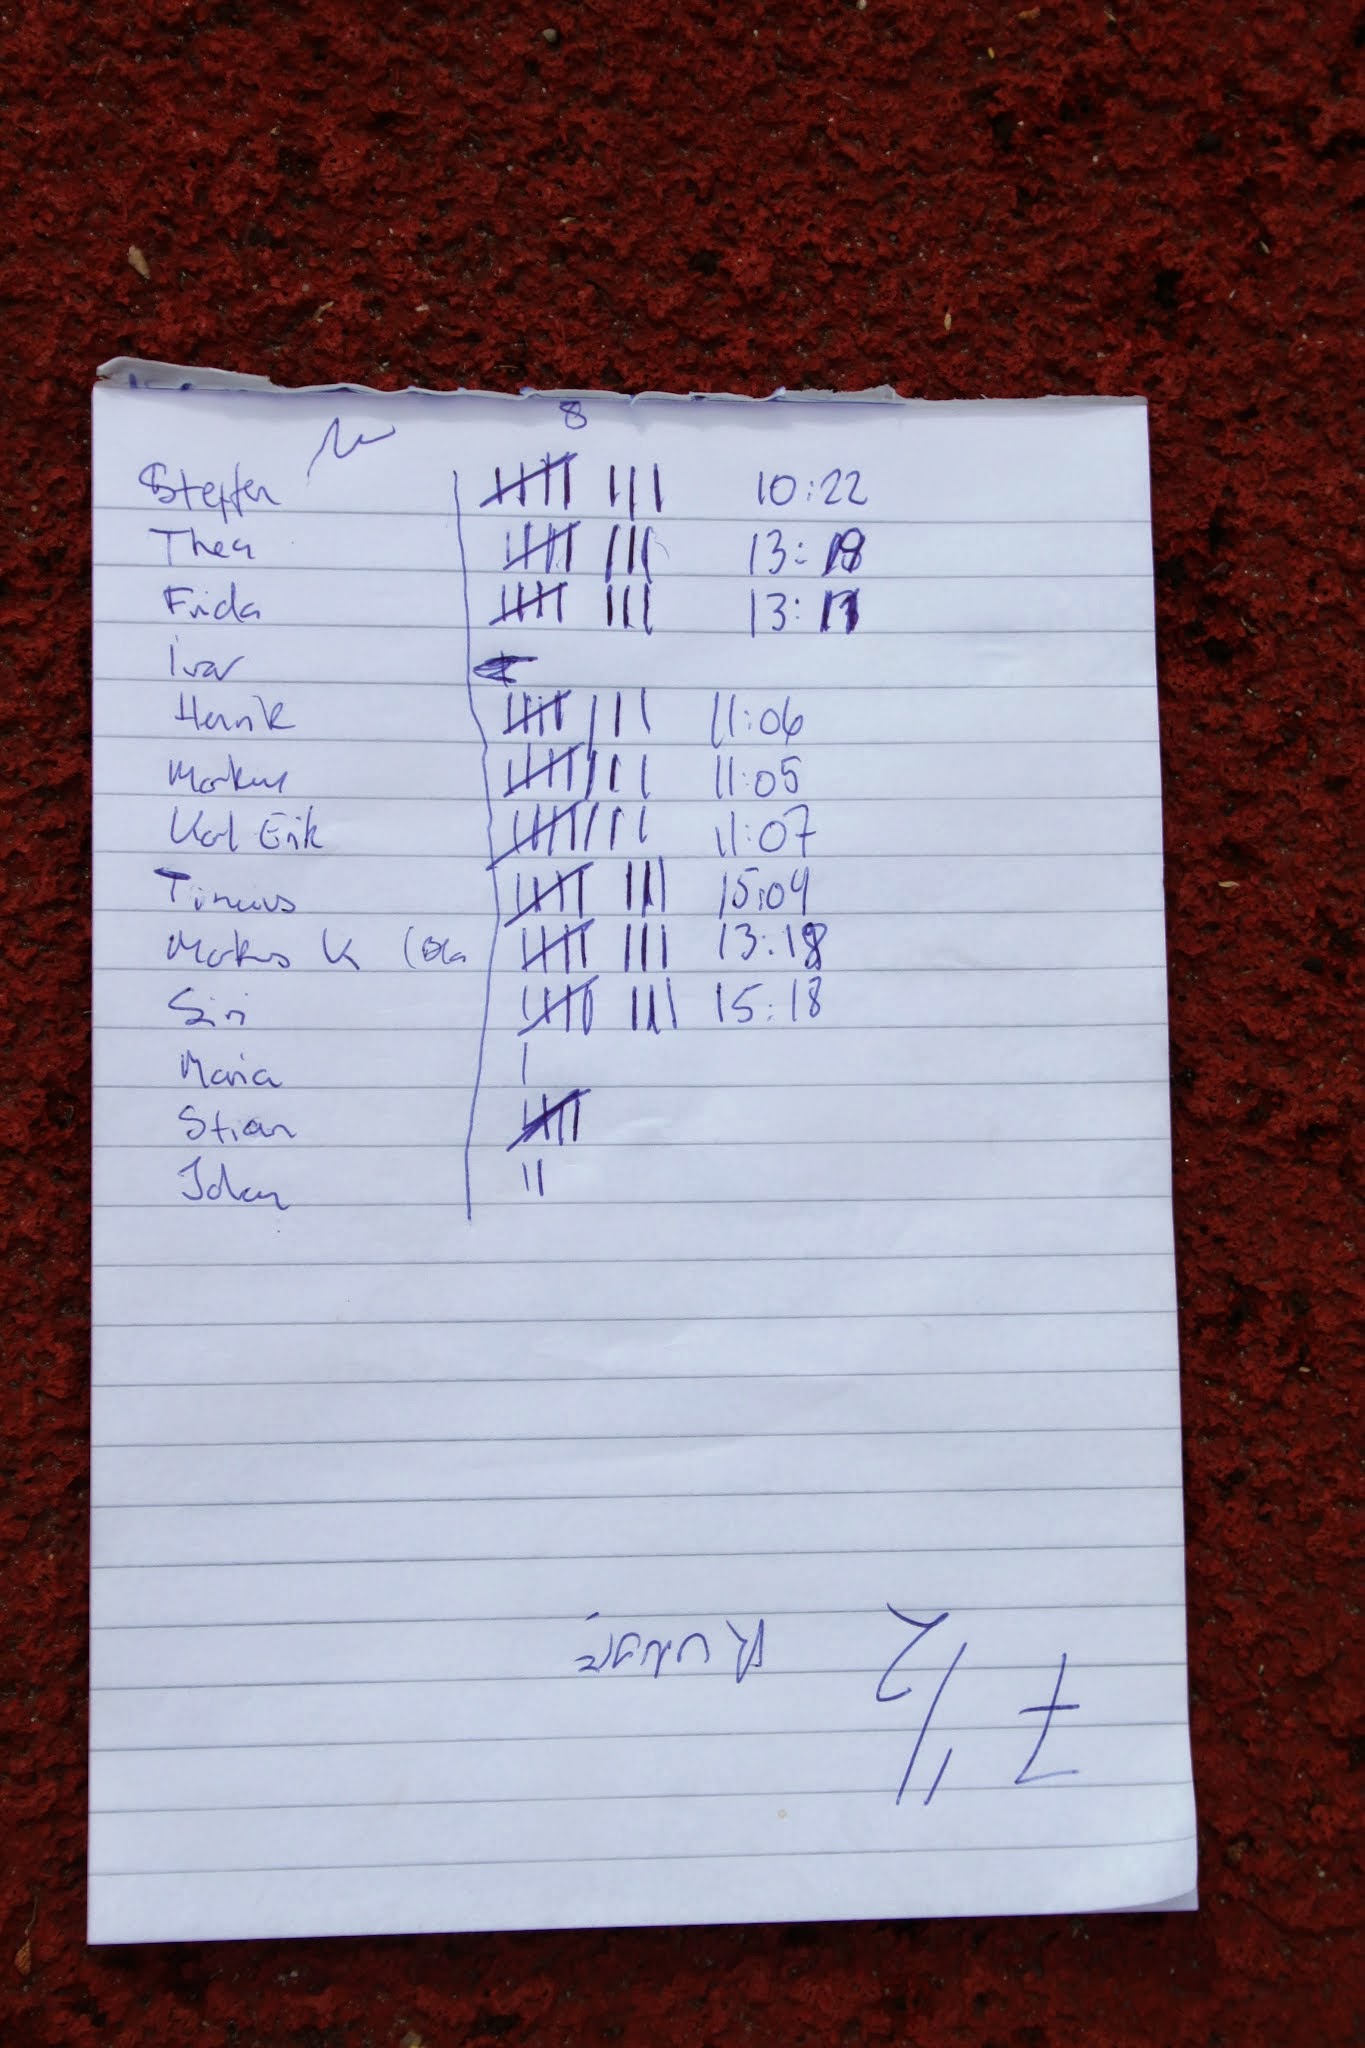 8
Steffen 10:22
Thea 13:18
Frida 13:17
Ivar
Henrik 11:06
Markus 11:05
Karl Erik 11:07
15:09
Markus K (Ola 13:18
Siri 15:18
Maria
Stian
Johan
7 1/2